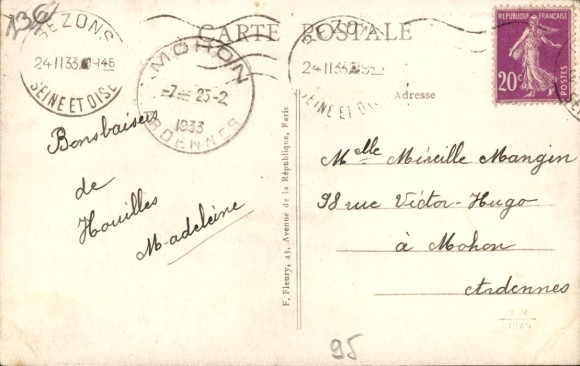 136
CARTE POSTALE
BEZONS
24 II 33 1945
SEINE ET OISE
MOHON
7 25-2
1933
ARDENNES
BEZONS
24 II 33
SEINE ET OISE
REPUBLIQUE FRANÇAISE
20c
POSTES
Adresse
Bons baisers
de
Houilles
Madeleine
F. Fleury, 43, Avenue de la République, Paris
Melle Mireille Mangin
98 rue Victor-Hugo
à Mohon
Ardennes
95